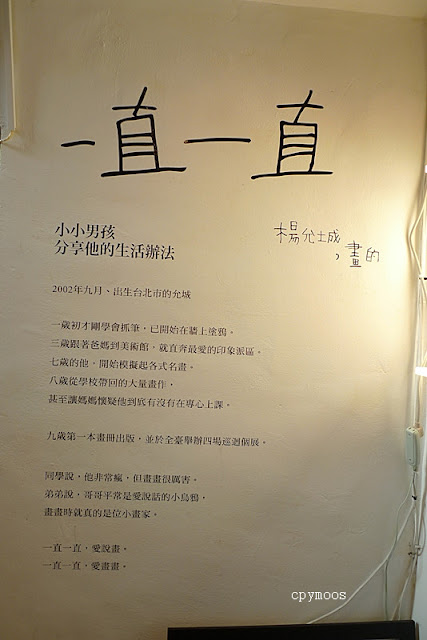 一直一直
小小男孩
分享他的生活辦法
楊允城，畫的
2002年九月、出生台北市的允城
一歲初才剛學會抓筆，已開始在牆上塗鴉。
三歲跟著爸媽到美術館，就直奔最愛的印象派區。
七歲的他，開始模擬起各式名畫。
八歲從學校帶回的大量畫作，
甚至讓媽媽懷疑他到底有沒有在專心上課。
九歲第一本畫冊出版，並於全臺舉辦四場巡迴個展。
同學說，他非常瘋，但畫畫很厲害。
弟弟說，哥哥平常是愛說話的小烏鴉，
畫畫時就真的是位小畫家。
一直一直，愛說畫。
一直一直，愛畫畫。
cpymoos